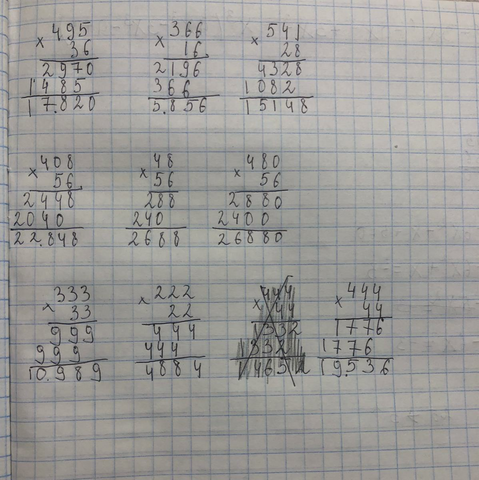 ×495 ×366 ×541
36 16 28
2970 2196 4328
1485 366 1082
17.820 5.856 15148
×408 ×48 ×480
56 56 56
2448 288 2880
2040 240 2400
22.848 2688 26880
×333 ×222 ×444
33 22 44
999 444 1332 1776
999 444 1776
10.989 4884 19.536